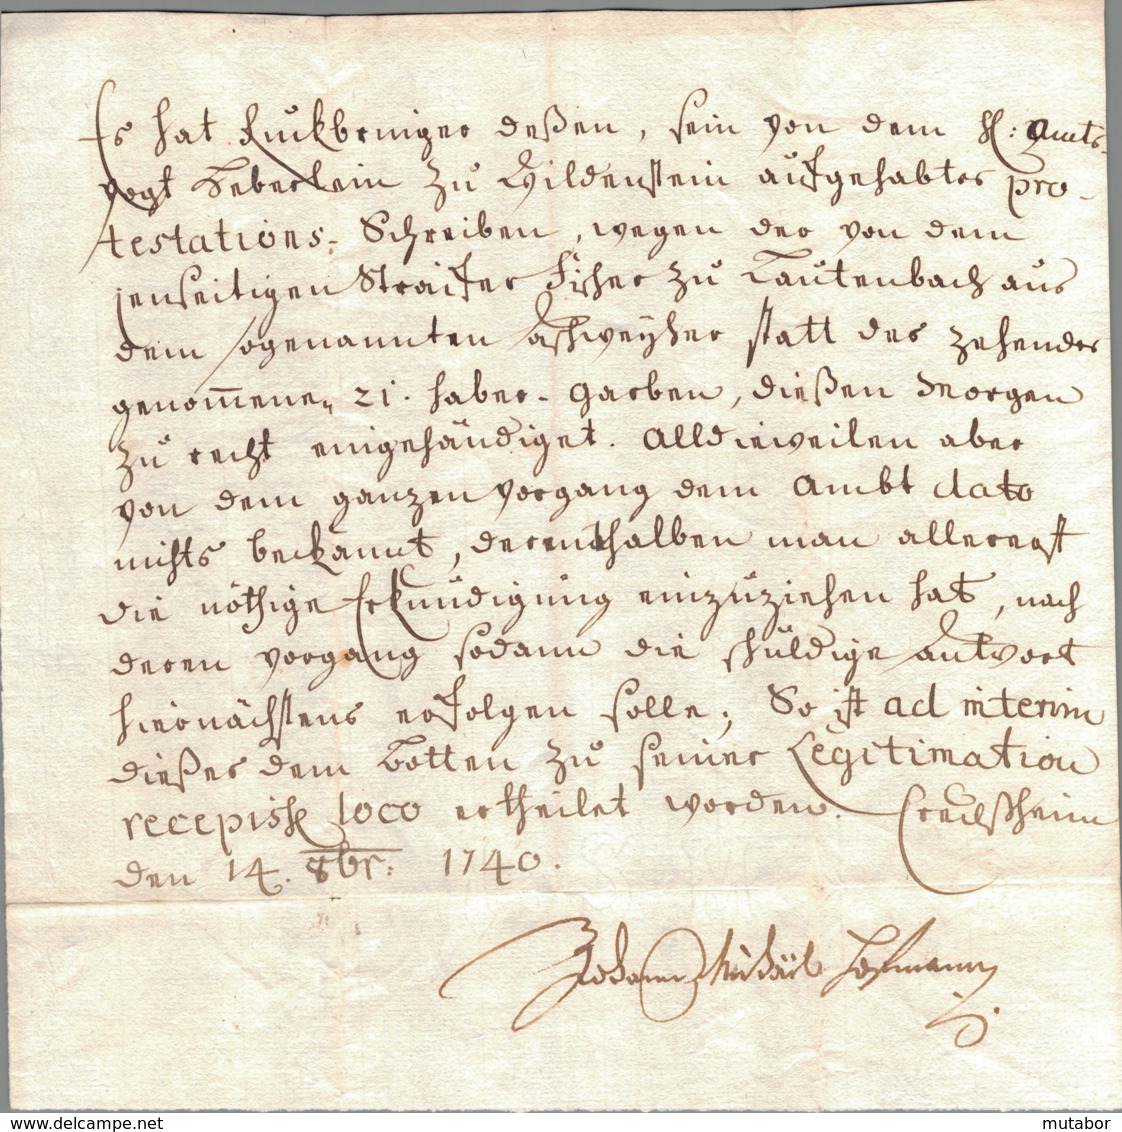 Es hat Ruckbringer deßen, sein von dem H: Amts-
vogt Heberlein zu Wildenstein aufgehabtes pro-
testations-Schreiben, wegen der von dem
jenseitigen Straifer Fischer zu Lautenbach aus
dem sogenannten Aschweyher statt des zehendes
genom̅enen 21. haber-Garben, dießen Morgen
zu recht eingehändiget. Alldieweilen aber
von dem ganzen vorgang dem Ambt dato
nichts beckannt, derenthalben man allererst
die nöthige Erkundigung einzuziehen hat, nach
deren vorgang sodann die schuldige antwort
hiernächstens erfolgen solle; So ist ad interim
dießes dem Botten zu seiner Legitimation
recepisse loco ertheilet worden. Creilsheim
den 14. 8br: 1740.
Johann Michael Hofmann
www.delcampe.net
mutabor